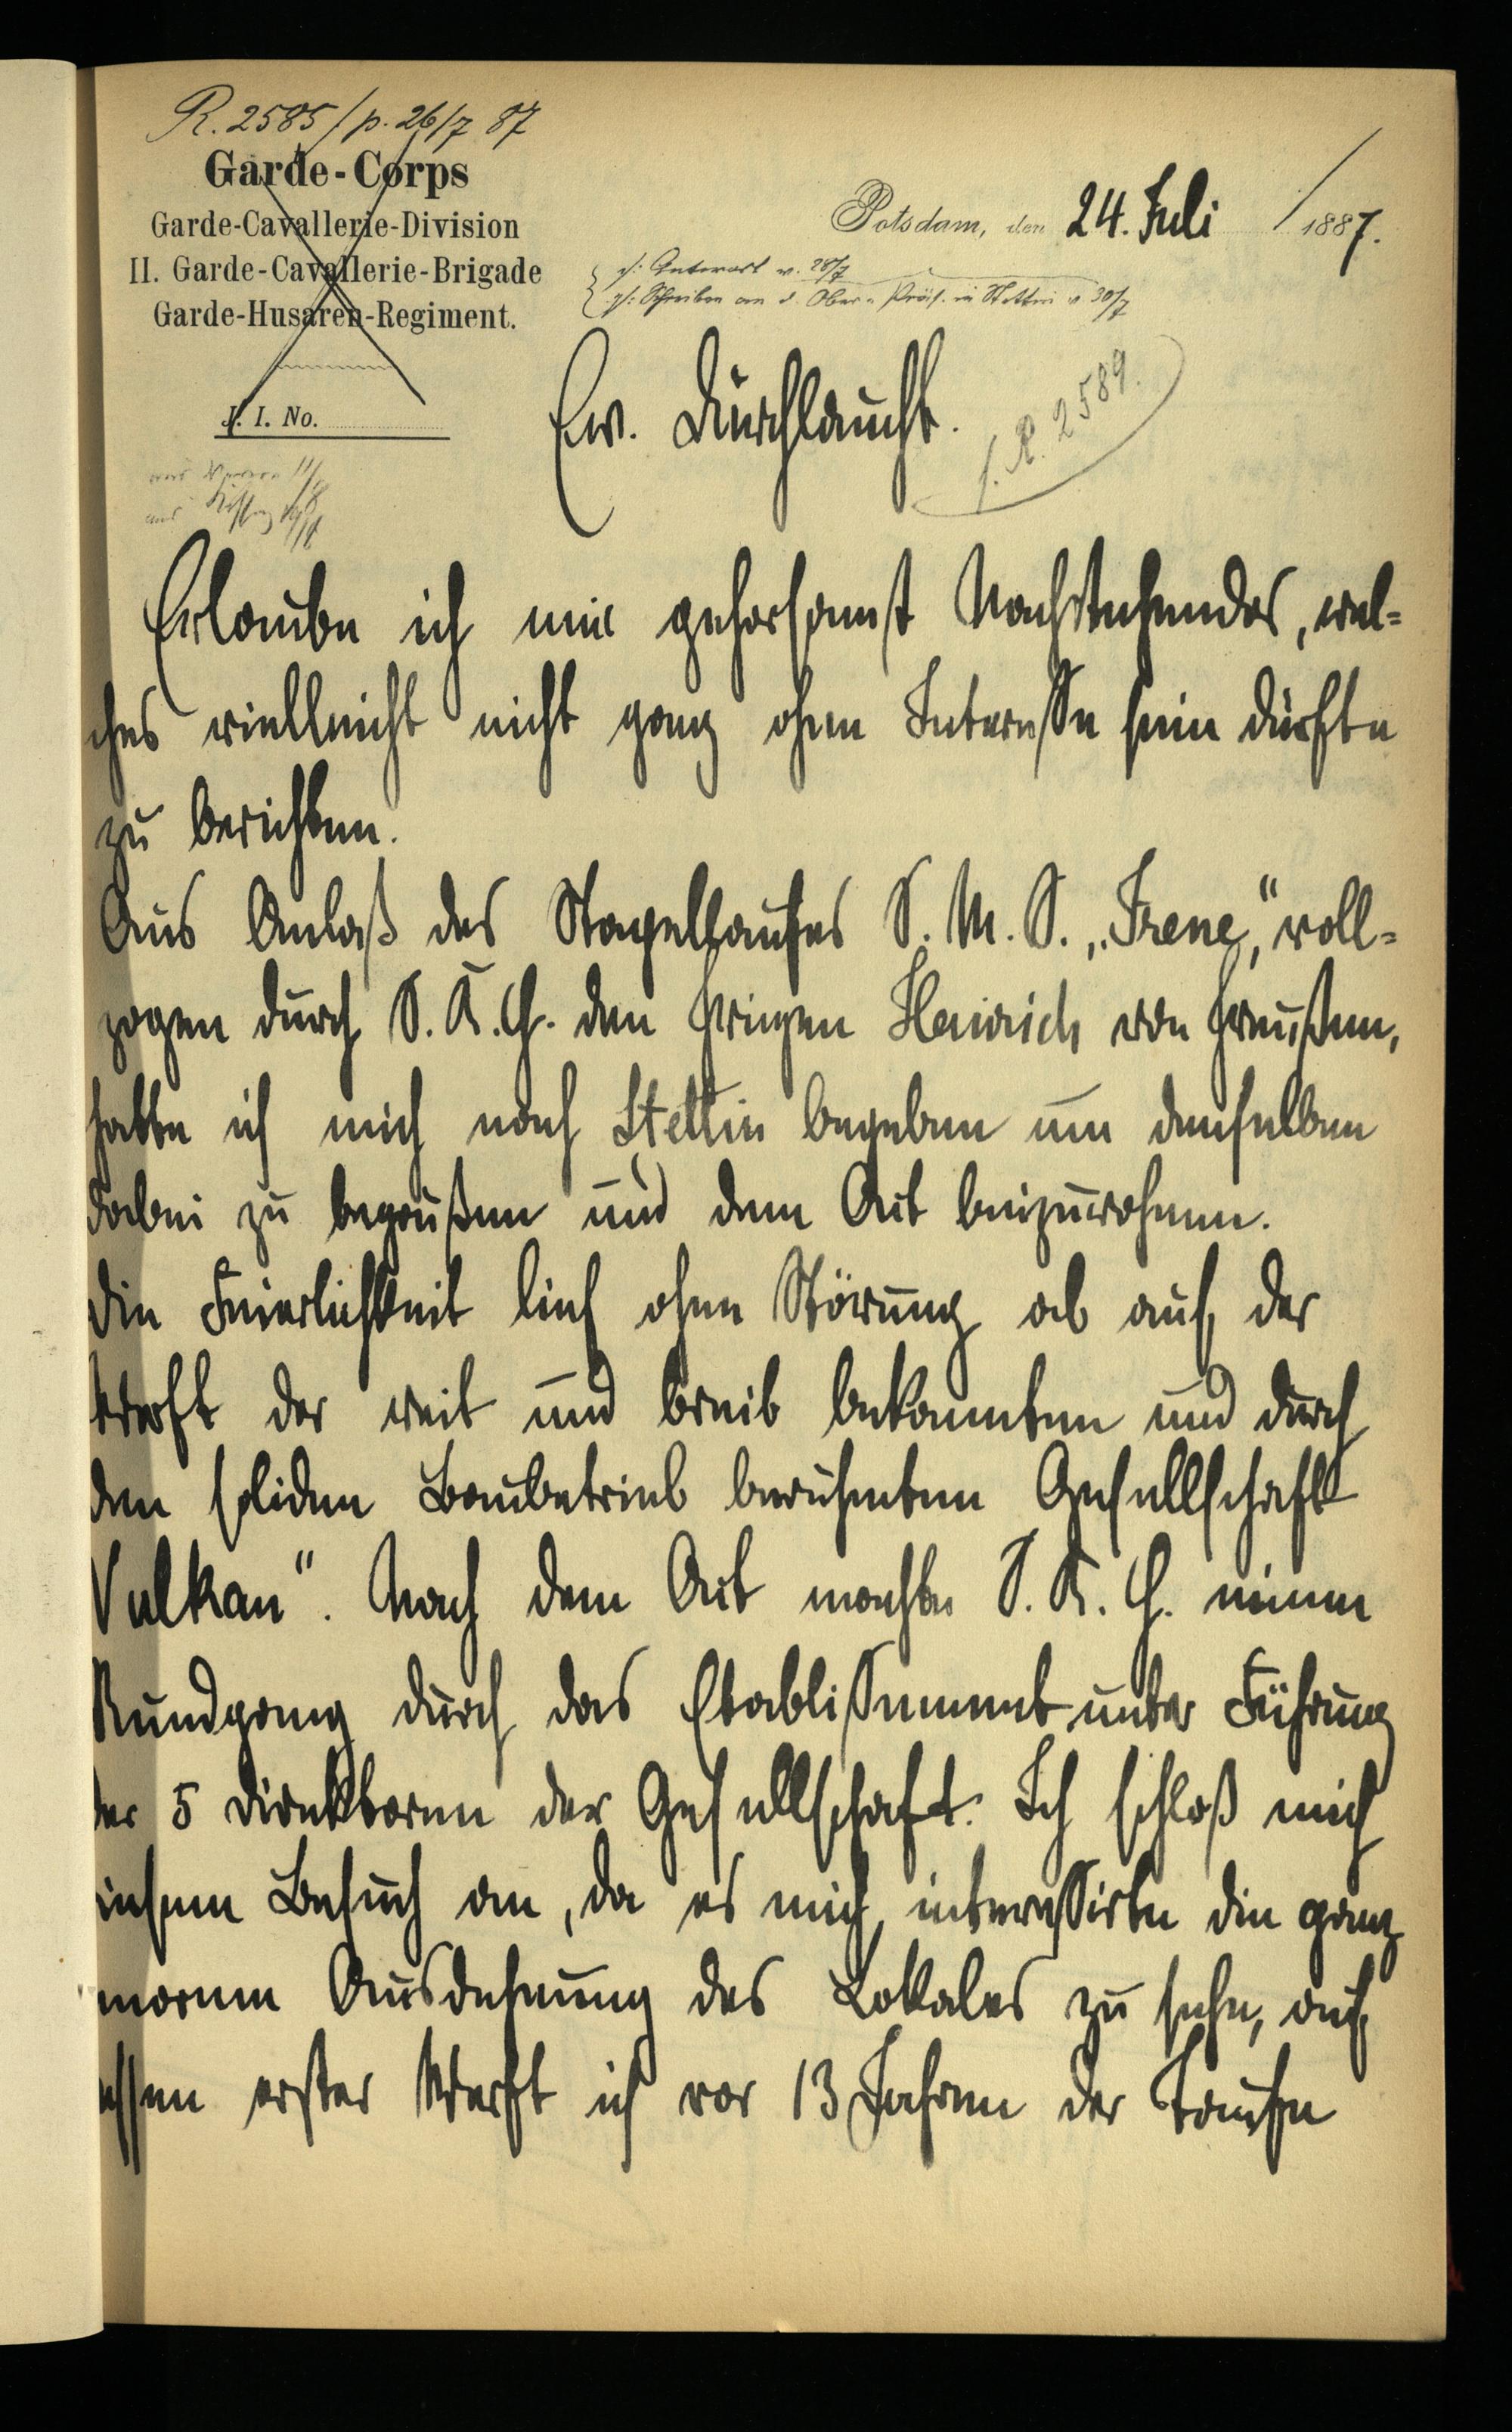 R. 2585 / p. 26/7 87
Garde-Corps
Garde-Cavallerie-Division
II. Garde-Cavallerie-Brigade
Garde-Husaren-Regiment.
J. I. No.
Potsdam, den 24. Juli 1887.
gf: Antwort v. 28/7
gf: Schreiben an d. Ober-Präs. in Stettin v 30/7
f. R. 2589.
Ew. Durchlaucht.
Erlaube ich mir gehorsamst Nachstehendes, wel-
ches vielleicht nicht ganz ohne Interesse sein dürfte
zu berichten.
Aus Anlaß des Stapellaufes S. M. S. „Irene“, voll-
zogen durch S. K. H. den Prinzen Heinrich von Preußen,
hatte ich mich nach Stettin begeben um denselben
dabei zu begrüßen und dem Act beizuwohnen.
Die Feierlichkeit lief ohne Störung ab auf der
Werft der weit und breit bekannten und durch
den soliden Baubetrieb berühmten Gesellschaft
Vulkan“. Nach dem Act machte S. K. H. einen
Rundgang durch das Etablissement unter Führung
der 5 Direktoren der Gesellschaft. Ich schloß mich
iesem Besuch an, da es mich interessirte die ganz
norme Ausdehnung des Lokales zu sehn, auf
essen erster Werft ich vor 13 Jahren der Taufe